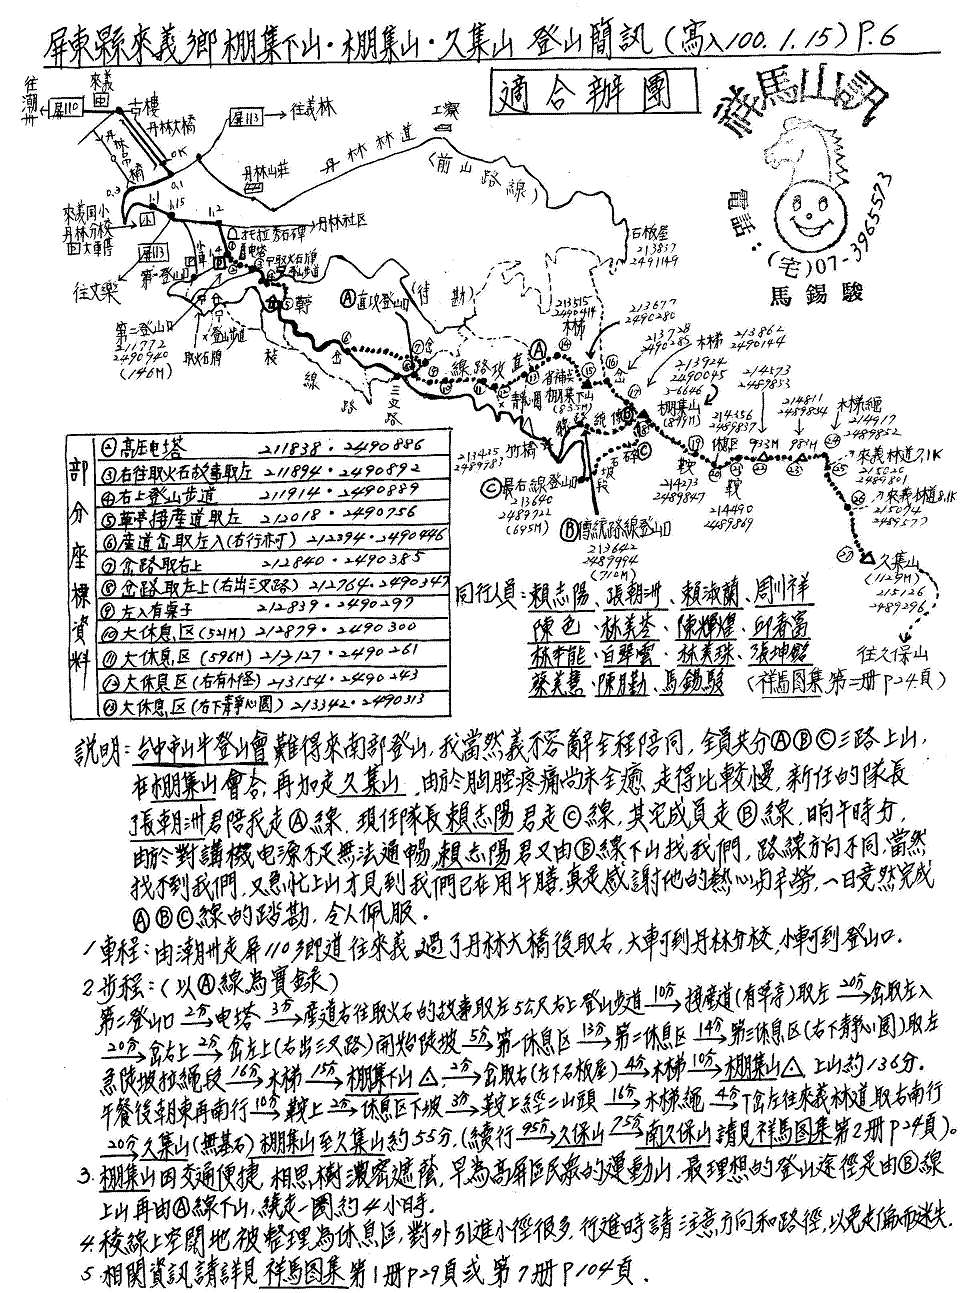 屏東縣來義鄉棚集下山·棚集山·久集山 登山簡訊(寫入100.1.15)P.6
適合辦團
祥馬山訊
電話:(宅)07-3965573
馬錫駿
往潮州
屏110
來義
古樓
丹林大橋
丹林吊橋
屏113
往義林
丹林山莊
丹林林道
工寮
(前山路線)
來義國小
丹林分校
大車停
屏113
往文樂
第一登山口
第二登山口
211772
2490940
(146M)
取火石牌
登山步道
丹林社區
石板屋
213857
2491149
Ⓐ直攻登山口
(待勘)
三叉路
直攻路線
213515
2490414
木梯
213677
2490280
213728
2490283
木梯
213862
2490164
213924
2490045
棚集下山
棚集山
竹橋
213435
2489783
Ⓒ最右線登山口
213640
2489722
(695M)
Ⓑ傳統路線登山口
213642
2489994
(710M)
214356
2489837
214573
2489853
214811
2489854
木梯繩
214917
2489852
214273
2489847
214490
2489869
來義林道7.1K
215020
2489801
來義林道8.1K
215074
2489577
久集山
215126
2489296
往久保山
部分座標資料
②高压电塔 211838·2490886
③右往取火石故事取左 211894·2490892
④右上登山步道 211914·2490889
⑤華亭接產道取左 212018·2490756
⑥產道岔取左入(右行亦可) 212294·2490446
⑦岔路取右上 212840·2490385
⑧岔路取左上(右出三叉路) 212764·2490347
⑨左入有桌子 212839·2490297
⑩大休息区(521M) 212879·2490300
⑪大休息区(596M) 213127·2490261
⑫大休息区(右有小徑) 213154·2490243
⑬大休息区(右下青靜心園) 213342·2490313
同行人員:賴志陽、張朝洲、賴淑蘭、周川祥
陳色、林美岑、陳輝煌、邱春富
白翠雲、林美珠
馬錫駿 (祥馬图集第二册P24頁)
說明:台中市山牛登山會難得來南部登山,我當然義不容辭全程陪同,全員共分ⒶⒷⒸ三路上山,
在棚集山會合,再加走久集山,由於胸腔疼痛尚未全癒,走得比較慢,新任的隊長
張朝洲君陪我走Ⓐ線,現任隊長賴志陽君走Ⓒ線,其它成員走Ⓑ線,晌午時分,
由於對講機电源不足無法通暢,賴志陽君又由Ⓑ線下山找我們,路線方向不同,當然
找不到我們,又急忙上山才見到我們已在用午膳,真是感謝他的熱心与辛勞,一日竟然完成
ⒶⒷⒸ線的踏勘,令人佩服。
1.車程:由潮州走屏110鄉道往來義,過了丹林大橋後取右,大車可到丹林分校,小車可到登山口.
2.步程:(以Ⓐ線為實錄)
第二登山口 2分→电塔 3分→產道右往取火石的故事取左5公尺右上登山步道 10分→接產道(有華亭)取左 20分→岔取左入
20分→岔右上 2分→岔左上(右出三叉路)開始陡坡 5分→第一休息区 13分→第二休息区 14分→第三休息区(右下青靜心園)取左
急陡坡拉繩段 16分→木梯 15分→棚集下山△ 2分→岔取右(左下石板屋) 4分→木梯 10分→棚集山△ 上山約136分.
午餐後朝東再南行 10分→鞍上 2分→休息区下坡 3分→鞍上經二山頭 16分→木梯繩 4分→丁岔左往來義林道取右南行
20分→久集山(無基石)棚集山至久集山約55分.(續行 95分→久保山 75分→南久保山 請見祥馬图集第2册P24頁)。
3.棚集山因交通便捷,相思樹濃密遮蔭,早為高屏區民眾的運動山,最理想的登山途徑是由Ⓑ線
上山再由Ⓐ線下山,繞走一圈約4小時.
4.稜線上空閒地,被整理為休息區,對外引進小徑很多,行進時請注意方向和路徑,以免走偏而迷失.
5.相關資訊請詳見祥馬图集第1册P29頁或第7册P104頁.